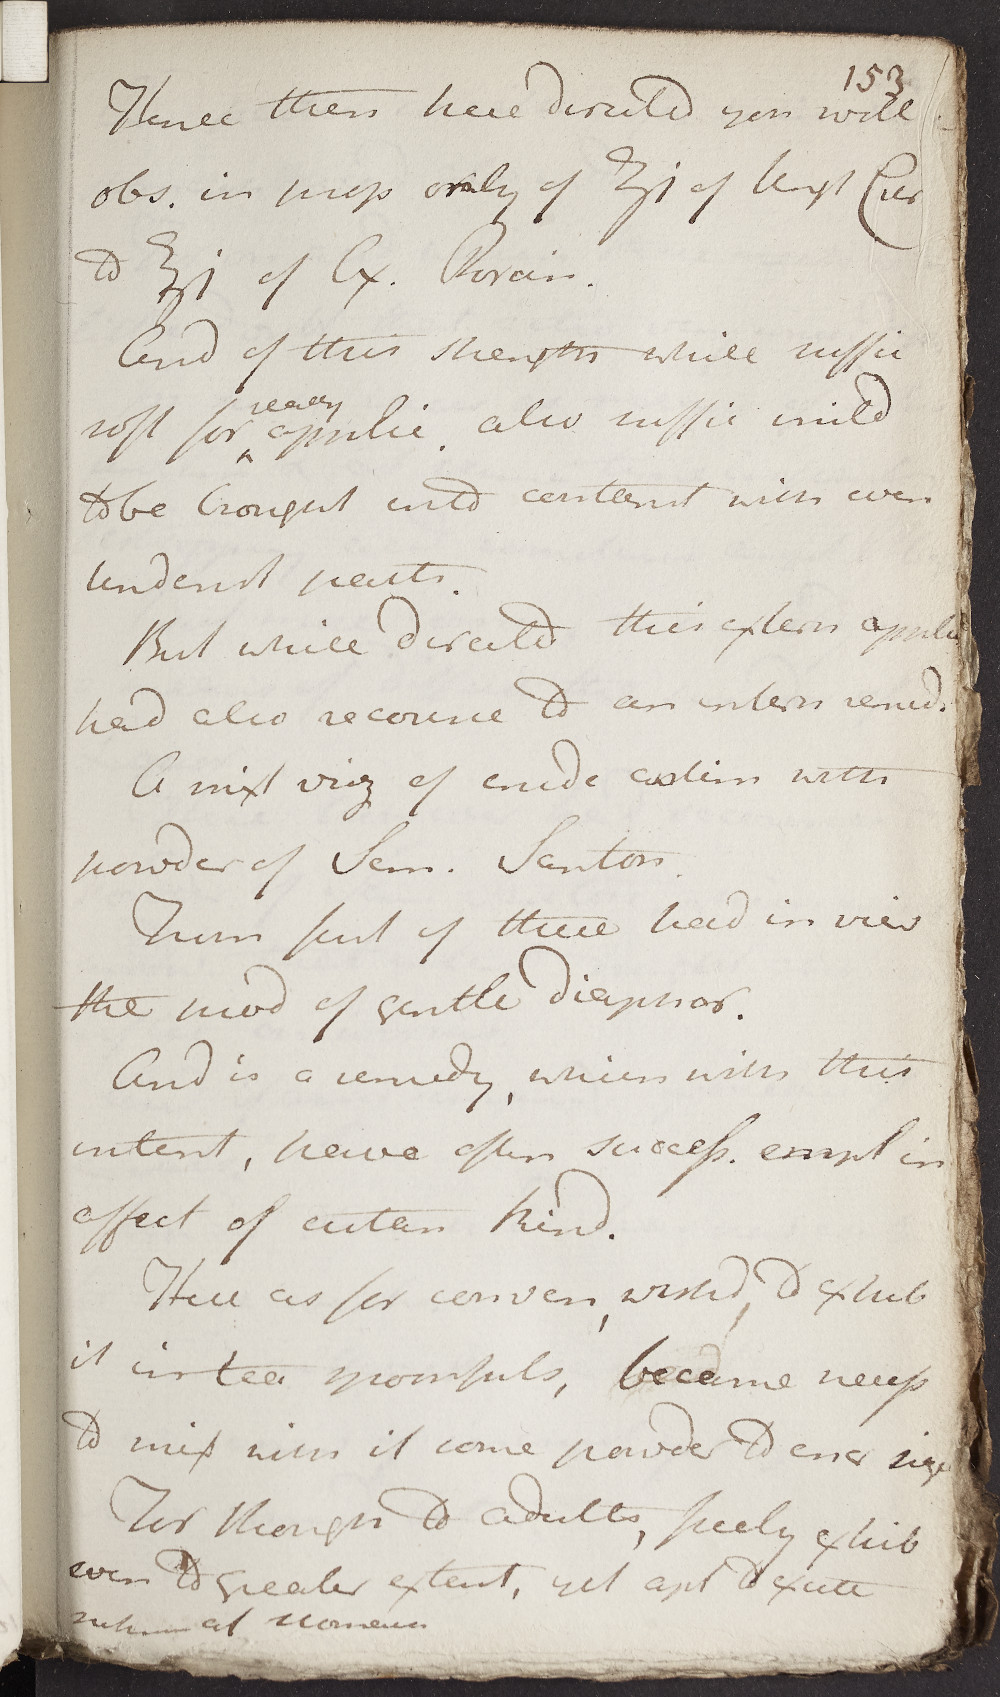 153
Hence then here directed you will
obs. in prop only of ʒj of Ungt Cær
to ʒj of Ex. Porcin.
And of this strength while suffic
soft for ready applic. also suffic mild
to be brought into contact with even
tenderest parts.
But while directed this extern applic
had also recourse to an intern remed.
A mixt viz of crude antim with
powder of Sem. Santon.
From first of these had in view
the mod of gentle diaphor.
And is a remedy, which with this
intent, have often success. empl in
affect of cutan kind.
Here as for conven, wished, to exhib
it in tea spoonfuls, became necess
to mix with it some powder to encr size
For though to adults, freely exhib
even to greater extent, yet apt to excite
at stomach